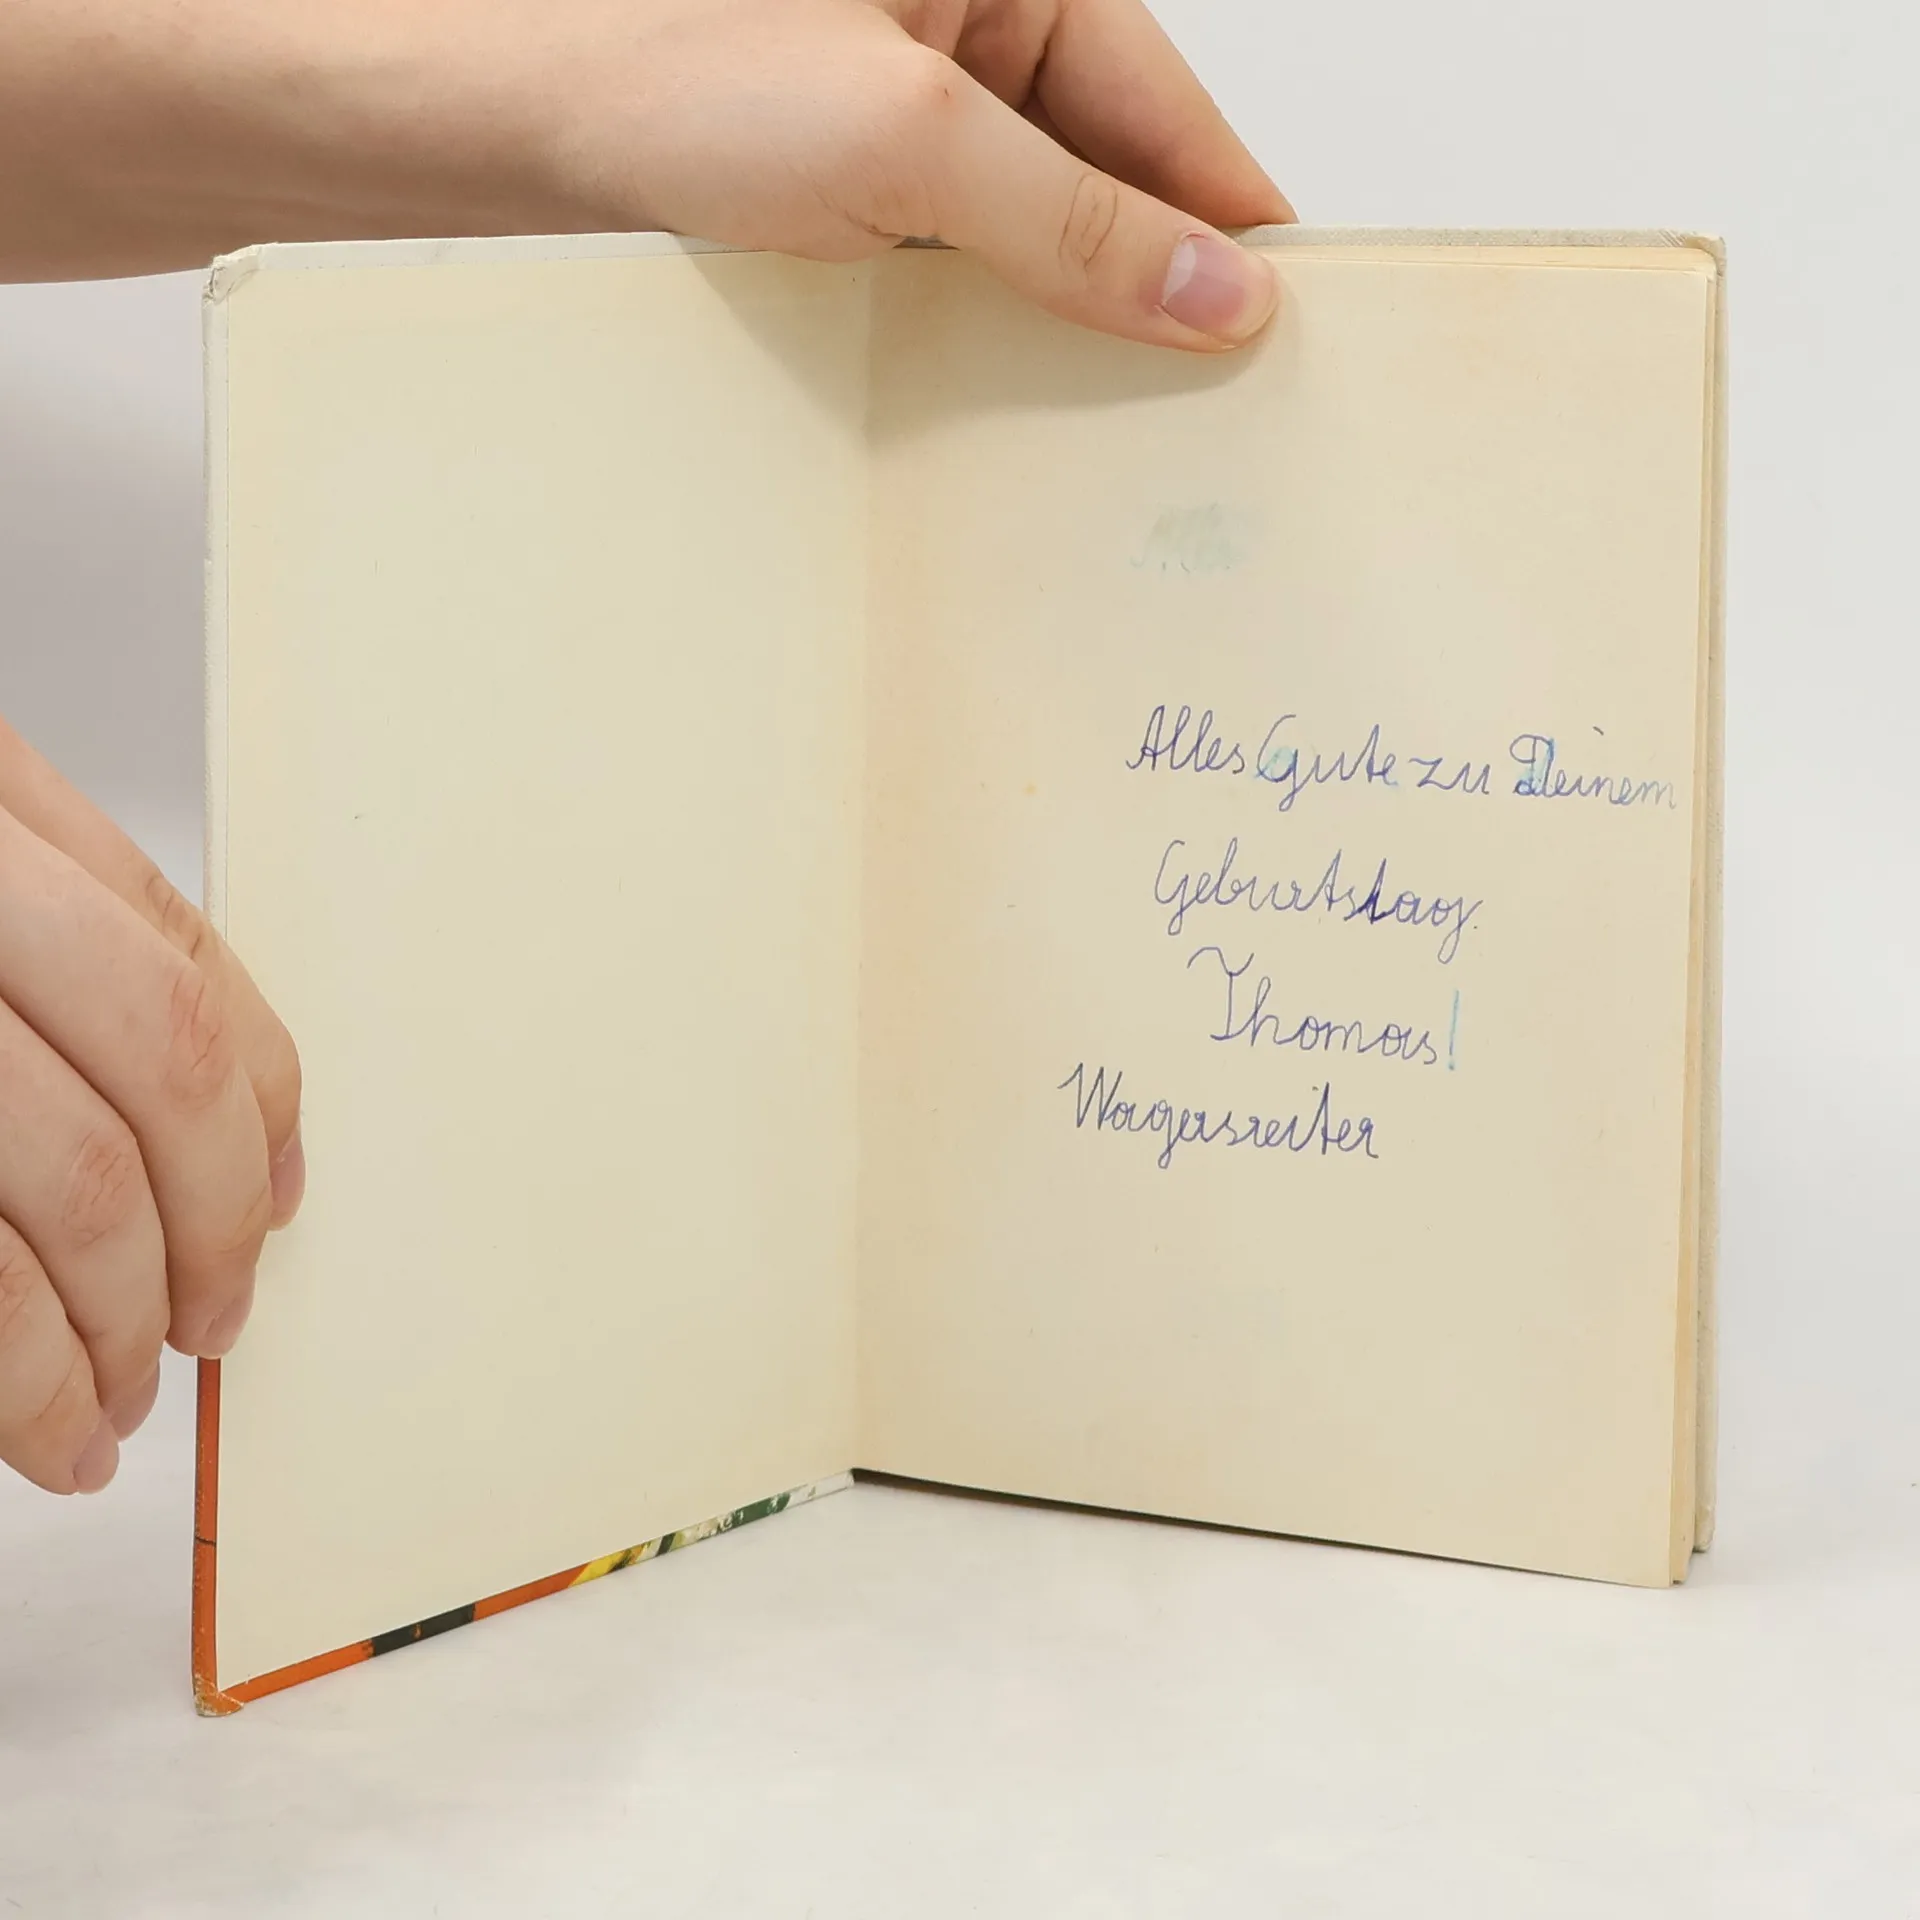 Alles Gute zu Deinem
Geburtstag.
Thomas!
Wagersreiter